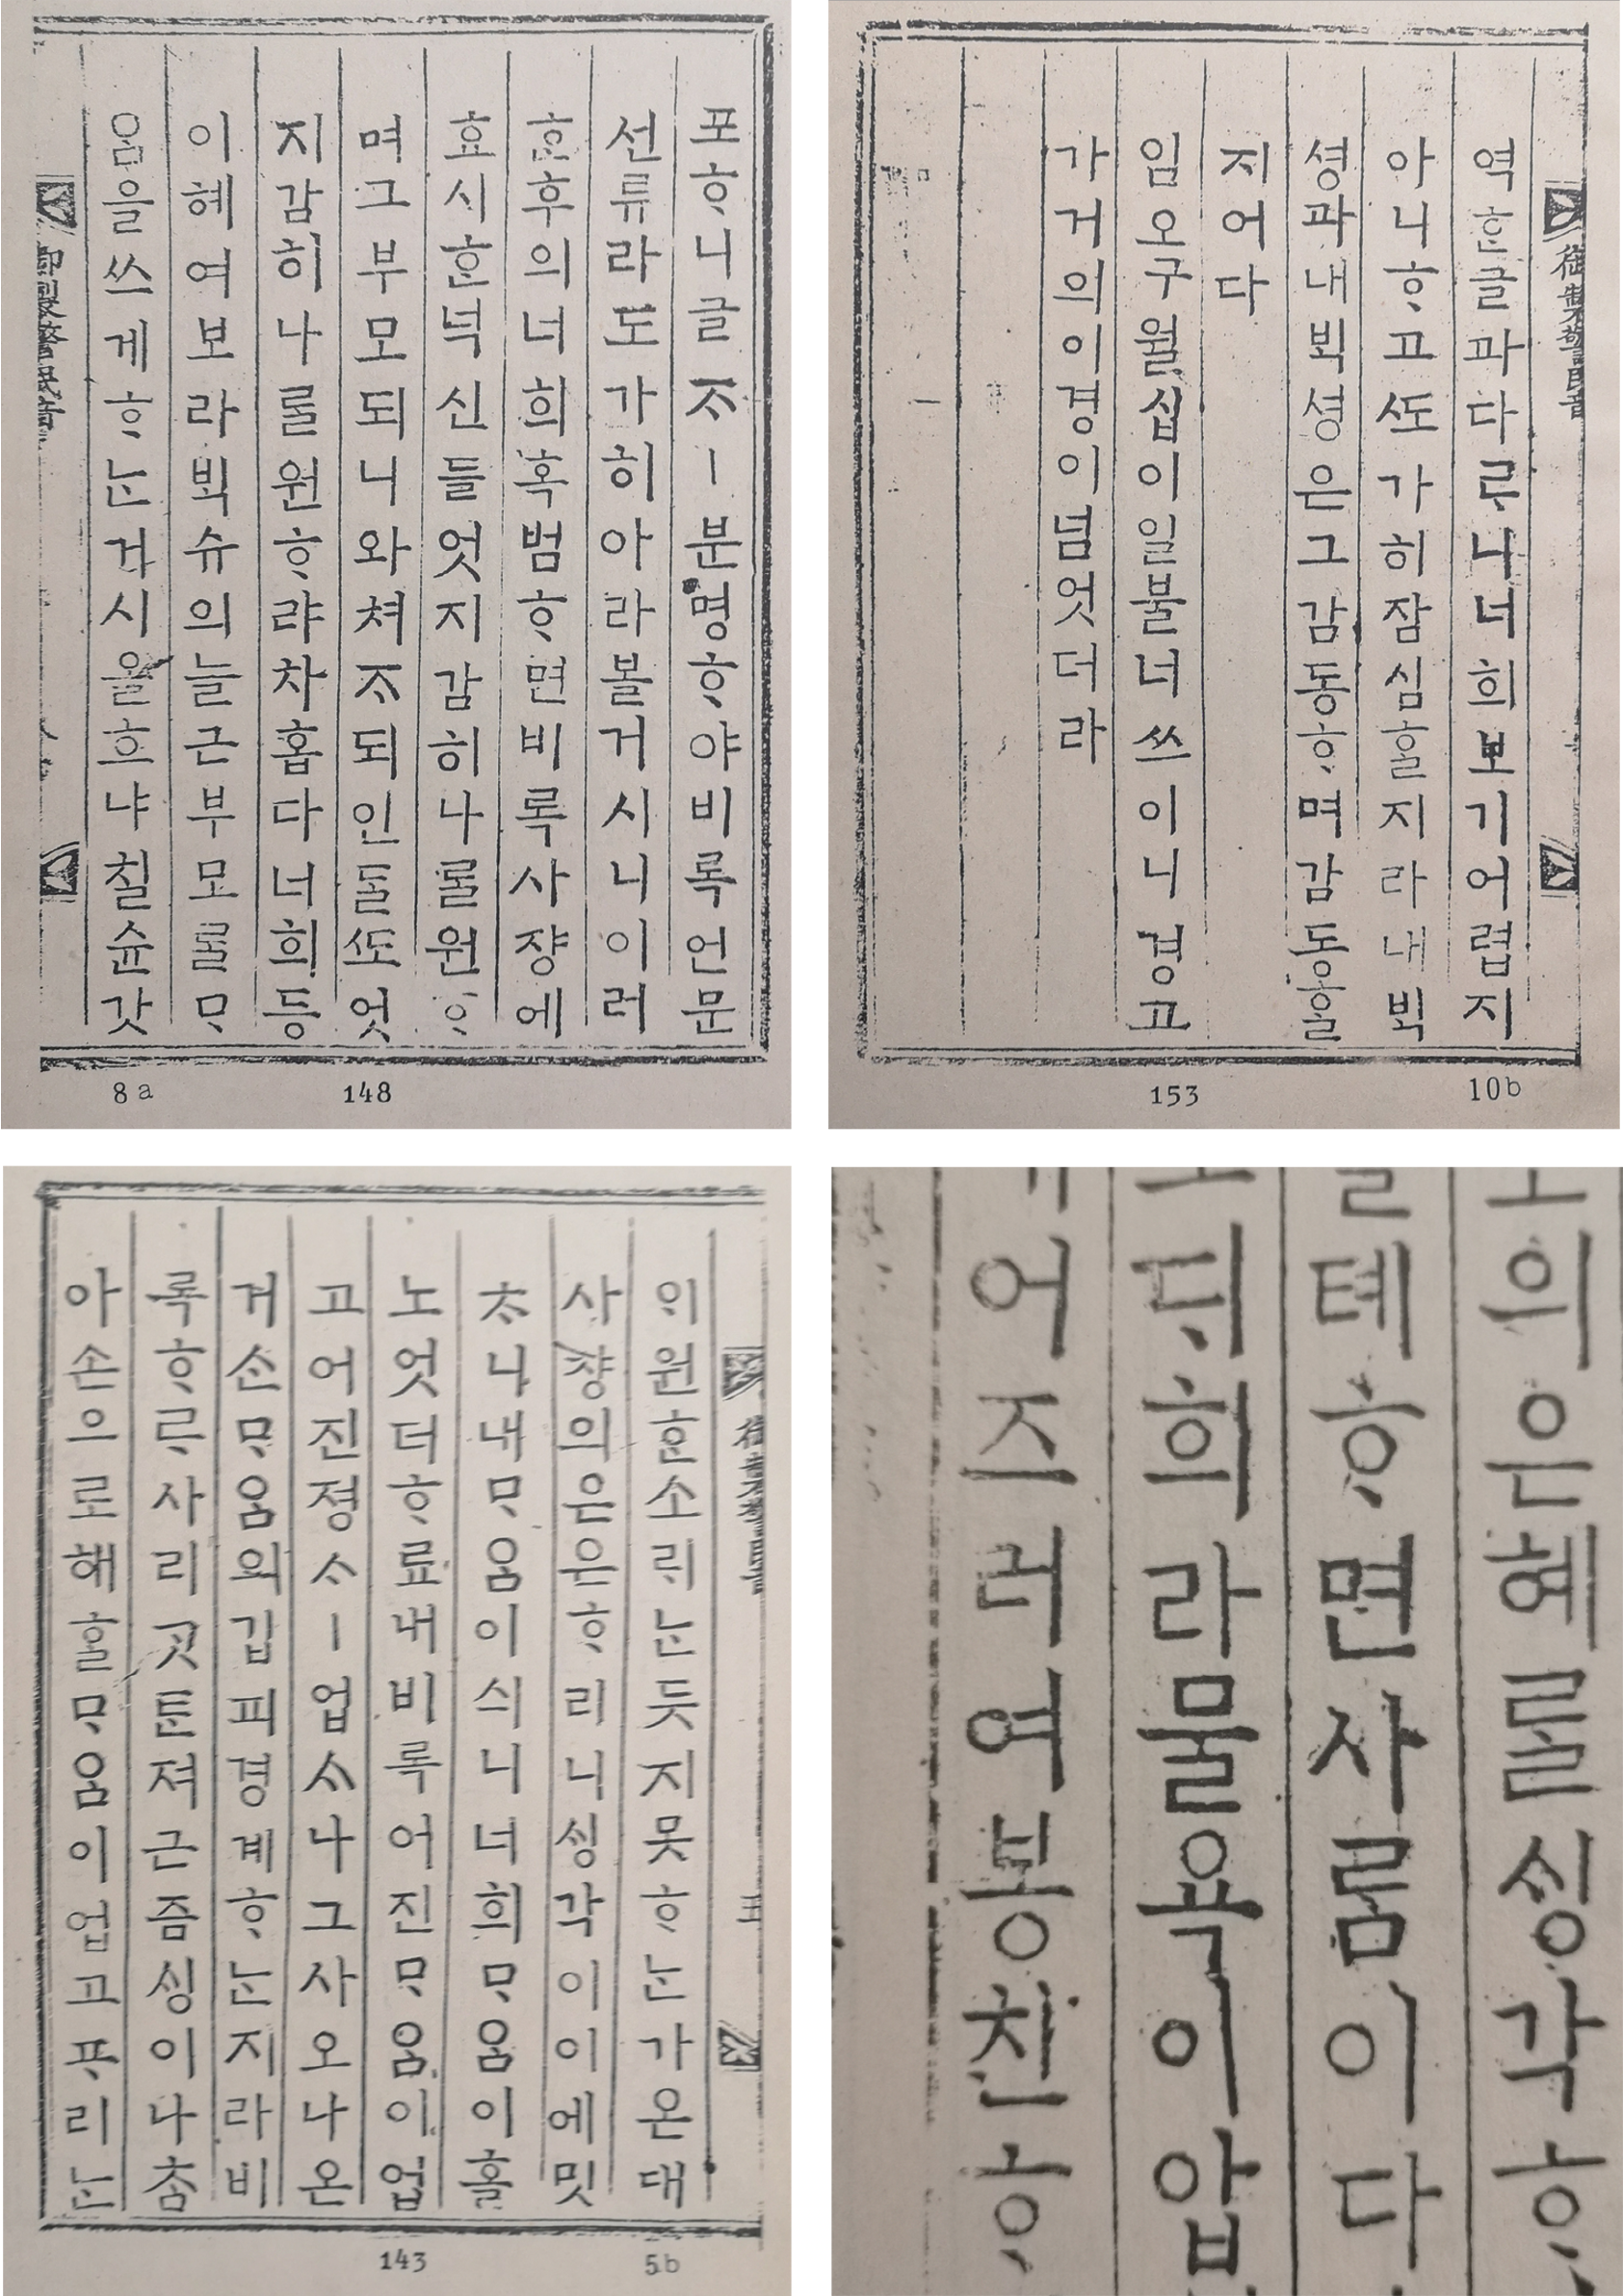 포ᄒᆞ니글ᄌᆞㅣ분명ᄒᆞ야비록언문
선류라도가히아라볼거시니이러
ᄒᆞᆫ후의너희혹범ᄒᆞ면비록사쟝에
효시ᄒᆞᆫ넉신들엇지감히나ᄅᆞᆯ원ᄒᆞ
며그부모되니와쳐ᄌᆞ되인ᄃᆞᆯᄯᅩ엇
지감히나ᄅᆞᆯ원ᄒᆞ랴차홉다너희등
이혜여보라ᄇᆡᆨ슈의늘근부모ᄅᆞᆯᄆᆞ
음을쓰게ᄒᆞᄂᆞᆫ거시올흐냐칠슌갓
御製警民音
8a 148
御製警民音
역ᄒᆞᆫ글과다ᄅᆞ니너희보기어렵지
아니ᄒᆞ고ᄯᅩ가히잠심ᄒᆞᆯ지라내ᄇᆡᆨ
셩과내ᄇᆡᆨ셩은그감동ᄒᆞ며감동ᄒᆞᆯ
지어다
임오구월십이일불너쓰이니경고
가거의이경이넘엇더라
153 10b
御製警民音 五
ᄋᆡ원ᄒᆞᆫ소ᄅᆡᄂᆞᆫ듯지못ᄒᆞᄂᆞᆫ가온대
사쟝의은은ᄒᆞ리니ᄉᆡᆼ각이이에밋
ᄎᆞ니내ᄆᆞ음이싀니너희ᄆᆞ음이홀
노엇더ᄒᆞ료내비록어진ᄆᆞ음이업
고어진졍ᄉᆞㅣ업ᄉᆞ나그사오나온
거ᄉᆞᆫᄆᆞ음의깁피경계ᄒᆞᄂᆞᆫ지라비
록ᄒᆞᄅᆞ사리ᄀᆞᆺᄐᆞᆫ져근즘ᄉᆡᆼ이나ᄎᆞᆷ
아손으로해ᄒᆞᆯᄆᆞ음이업고ᄑᆞ리ᄂᆞᆫ
143 5b
의은혜ᄅᆞᆯᄉᆡᆼ각ᄒᆞ
톄ᄒᆞ면사ᄅᆞᆷ이다
ᄃᆡ희라물욕이압
어즈러여봉친ᄒᆞ